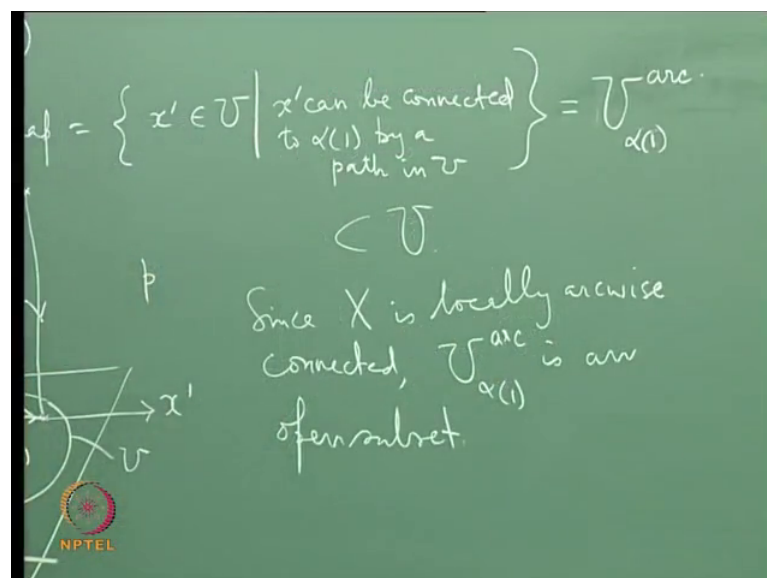 = { x' ∈ U | x' can be connected
to α(1) by a
path in U } = U^{arc}_{α(1)}.
⊂ U.
p
Since X is locally arcwise
connected, U^{arc}_{α(1)} is an
open subset.
x'
U
NPTEL